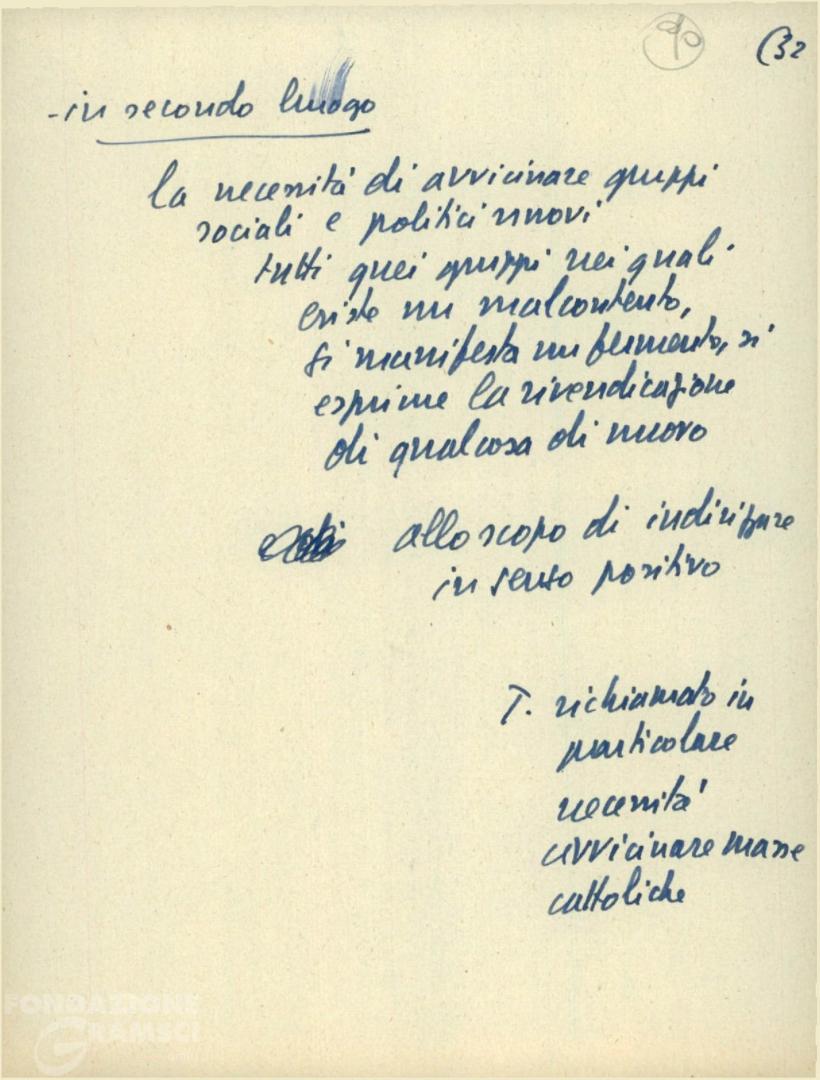 (32
- in secondo luogo
la necessità di avvicinare gruppi
sociali e politici nuovi
tutti quei gruppi nei quali
esiste un malcontento,
si manifesta un fermento, si
esprime la rivendicazione
di qualcosa di nuovo
allo scopo di indirizzare
in senso positivo
T. richiamato in
particolare
necessità
avvicinare masse
cattoliche
FONDAZIONE
GRAMSCI